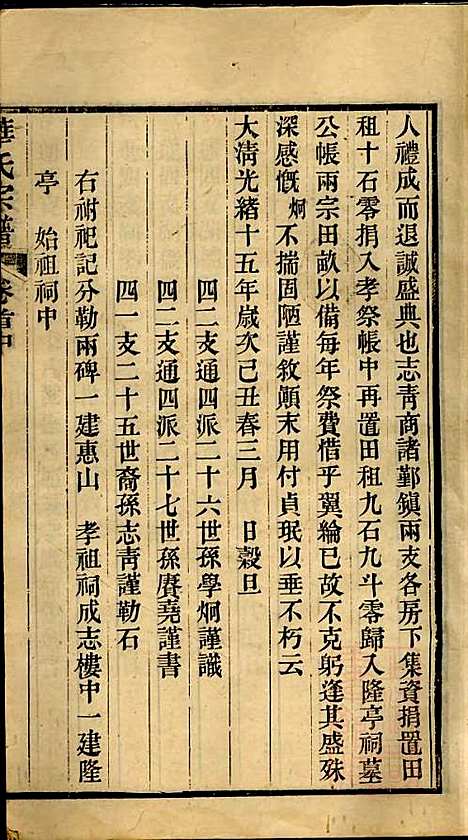 人禮成而退誠盛典也志靑商諸鄞鎭兩支各房下集資捐置田
租十石零捐入孝祭帳中再置田租九石九斗零歸入隆亭祠墓
公帳兩宗田畝以備每年祭費惜乎翼綸已故不克躬逢其盛殊
深感慨炯不揣固陋謹敘顛末用付貞珉以垂不朽云
大淸光緖十五年歲次己丑春三月 日穀旦
四二支通四派二十六世孫學炯謹識
四二支通四派二十七世孫賡堯謹書
四一支二十五世裔孫志靑謹勒石
右祔祀記分勒兩碑一建惠山 孝祖祠成志樓中一建隆
亭 始祖祠中
華氏宗譜 卷首中